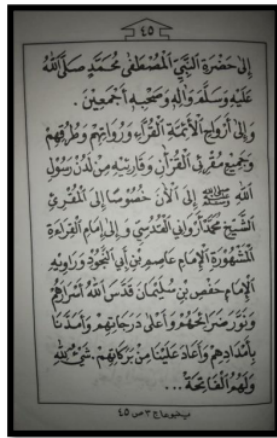 ٤٥
إِلَى حَضْرَةِ النَّبِيِّ الْمُصْطَفَى مُحَمَّدٍ صَلَّى اللهُ
عَلَيْهِ وَسَلَّمَ وَآلِهِ وَصَحْبِهِ أَجْمَعِيْنَ .
وَإِلَى أَرْوَاحِ الْأَئِمَّةِ الْقُرَّاءِ وَرُوَاتِهِمْ وَطُرُقِهِمْ
وَجَمِيْعِ مُقْرِئِى الْقُرْآنِ وَقَارِئِيْهِ مِنْ لَدُنْ رَسُوْلِ
اللهِ ﷺ إِلَى الْآنَ خُصُوْصًا إِلَى الْمُقْرِئِ
الشَّيْخِ مُحَمَّدْ أَرْوَانِي الْقُدْسِيِّ وَإِلَى إِمَامِ الْقِرَاءَةِ
الْمَشْهُوْرَةِ الْإِمَامِ عَاصِمِ بْنِ أَبِي النَّجُوْدِ وَرَاوِيْهِ
الْإِمَامِ حَفْصِ بْنِ سُلَيْمَانَ قَدَّسَ اللهُ أَسْرَارَهُمْ
وَنَوَّرَ ضَرَائِحَهُمْ وَأَعْلَى دَرَجَاتِهِمْ وَأَمَدَّنَا
بِأَمْدَادِهِمْ وَأَعَادَ عَلَيْنَا مِنْ بَرَكَاتِهِمْ . شَيْءٌ لِلّهِ
وَلَهُمُ الْفَاتِحَةُ ...
ينبوعا ج ٣ ص ٤٥